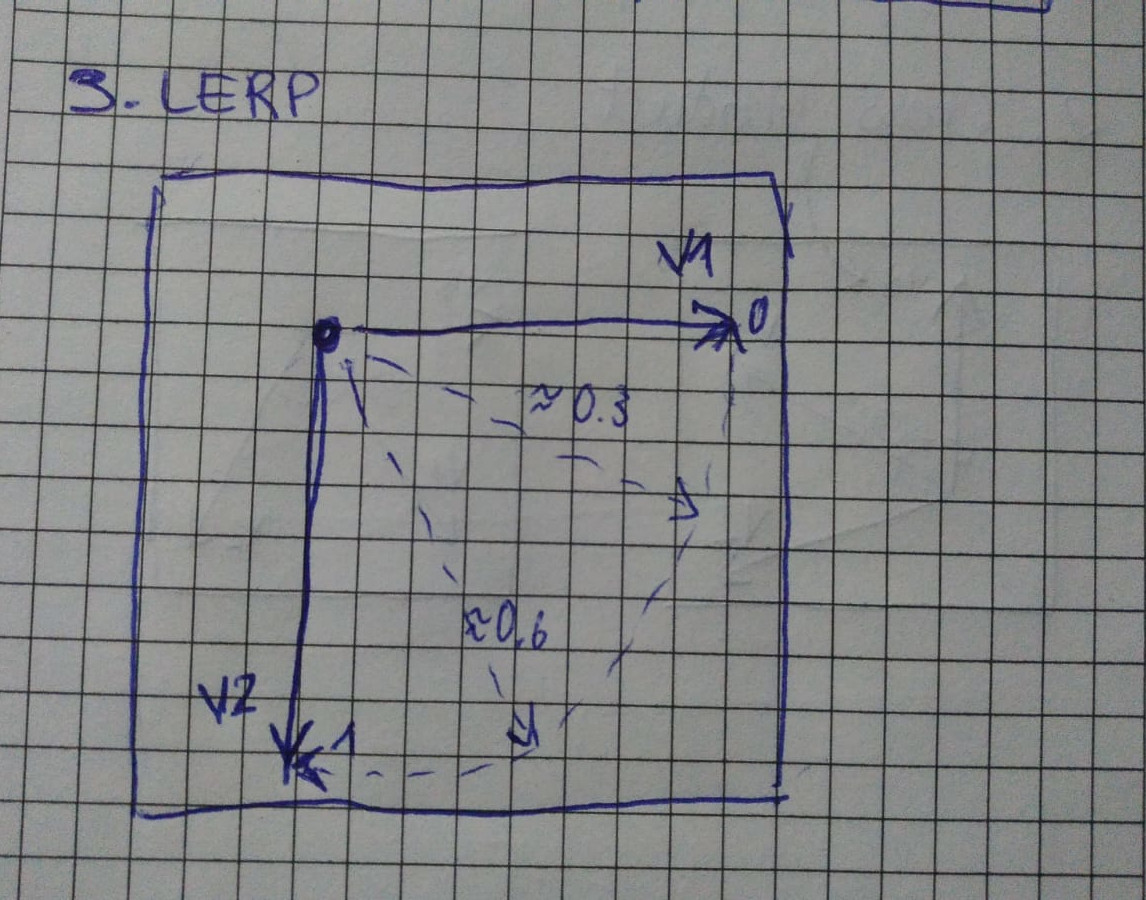 3. LERP
V1
0
≈ 0.3
≈0.6
V2
1